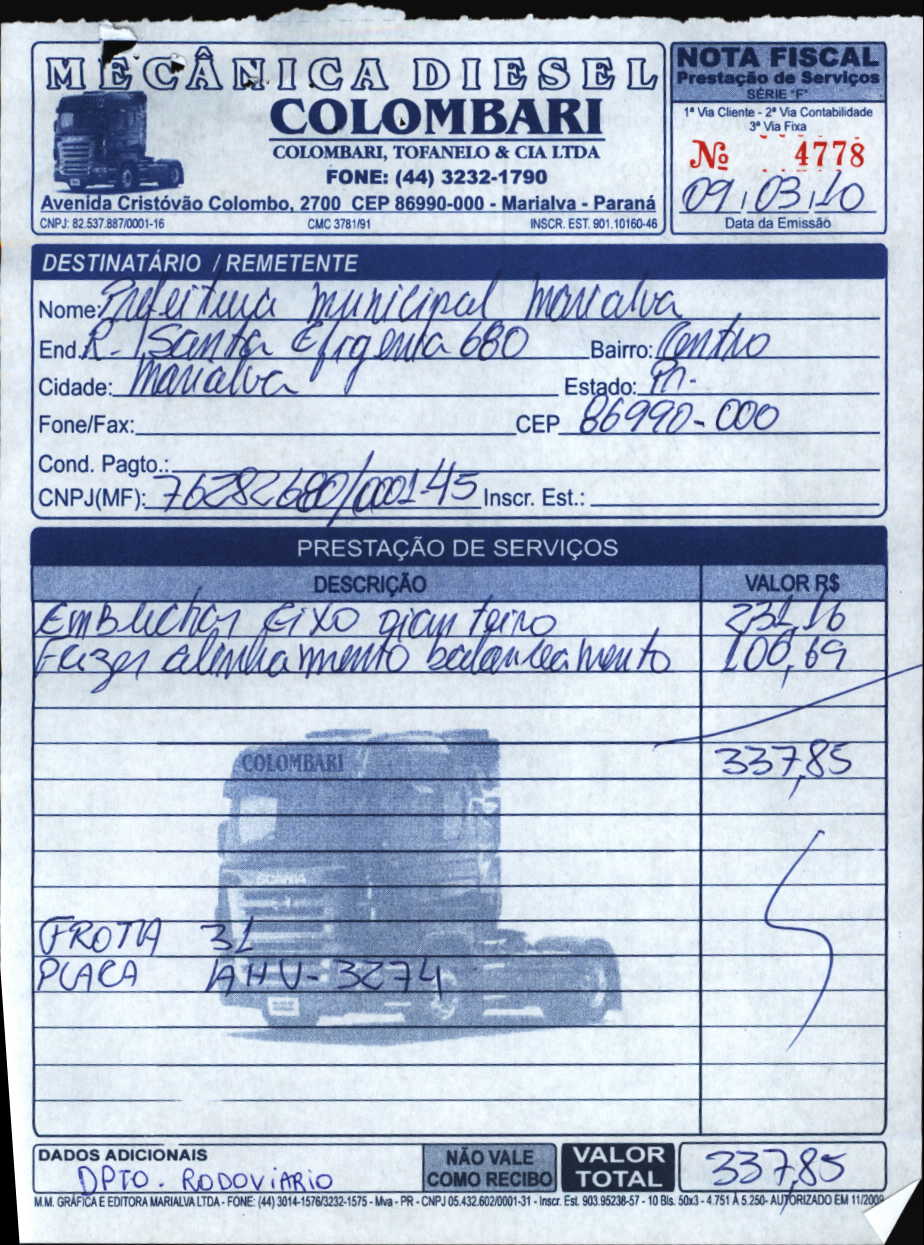 MECÂNICA DIESEL
COLOMBARI
COLOMBARI, TOFANELO & CIA LTDA
FONE: (44) 3232-1790
Avenida Cristóvão Colombo, 2700 CEP 86990-000 - Marialva - Paraná
CNPJ: 82.537.887/0001-16 CMC 3781/91 INSCR. EST. 901.10160-46
NOTA FISCAL
Prestação de Serviços
SÉRIE "F"
1ª Via Cliente - 2ª Via Contabilidade
3ª Via Fixa
Nº 4778
09,03,10
Data da Emissão
DESTINATÁRIO / REMETENTE
Nome: Prefeitura municipal marialva
End. R. Santa Efigenia 680 Bairro: Centro
Cidade: marialva Estado: Pr.
Fone/Fax: CEP 86990-000
Cond. Pagto.:
CNPJ(MF): 76282680/000145 Inscr. Est.:
PRESTAÇÃO DE SERVIÇOS
DESCRIÇÃO VALOR R$
Embuchar Eixo dianteiro
Fazer alinhamento balanceamento 100,69
COLOMBARI
337,85
SCANIA
FROTA 31
PLACA AHV-3274
DADOS ADICIONAIS
DPTO. RODOVIARIO
NÃO VALE
COMO RECIBO
VALOR
TOTAL
337,85
M.M. GRÁFICA E EDITORA MARIALVA LTDA - FONE: (44) 3014-1576/3232-1575 - Mva - PR - CNPJ 05.432.602/0001-31 - Inscr. Est. 903.95238-57 - 10 Bls. 50x3 - 4.751 À 5.250- AUTORIZADO EM 11/2009